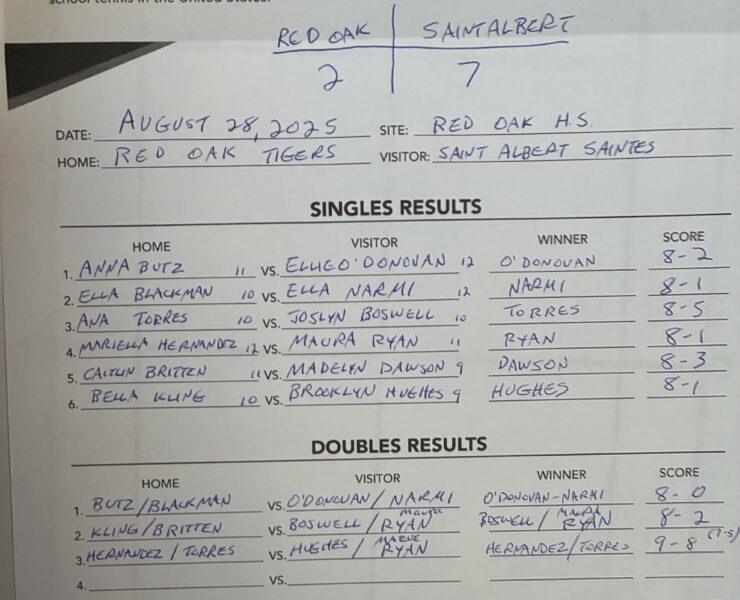 school tennis in the United States.
RED OAK SAINT ALBERT
2 7
DATE: AUGUST 28, 2025 SITE: RED OAK H.S.
HOME: RED OAK TIGERS VISITOR: SAINT ALBERT SAINTES
SINGLES RESULTS
HOME VISITOR WINNER SCORE
1. ANNA BUTZ 11 VS. ELLIE O'DONOVAN 12 O'DONOVAN 8-2
2. ELLA BLACKMAN 10 VS. ELLA NARMI 12 NARMI 8-1
3. ANA TORRES 10 VS. JOSLYN BOSWELL 10 TORRES 8-5
4. MARIELLA HERNANDEZ 12 VS. MAURA RYAN 11 RYAN 8-1
5. CAITLIN BRITTEN 11 VS. MADELYN DAWSON 9 DAWSON 8-3
6. BELLA KLING 10 VS. BROOKLYN HUGHES 9 HUGHES 8-1
DOUBLES RESULTS
HOME VISITOR WINNER SCORE
1. BUTZ/BLACKMAN VS. O'DONOVAN/NARMI O'DONOVAN-NARMI 8-0
2. KLING/BRITTEN VS. BOSWELL/MAURA RYAN BOSWELL/MAURA RYAN 8-2
3. HERNANDEZ/TORRES VS. HUGHES/MAEVE RYAN HERNANDEZ/TORRES 9-8 (7-5)
4. VS.